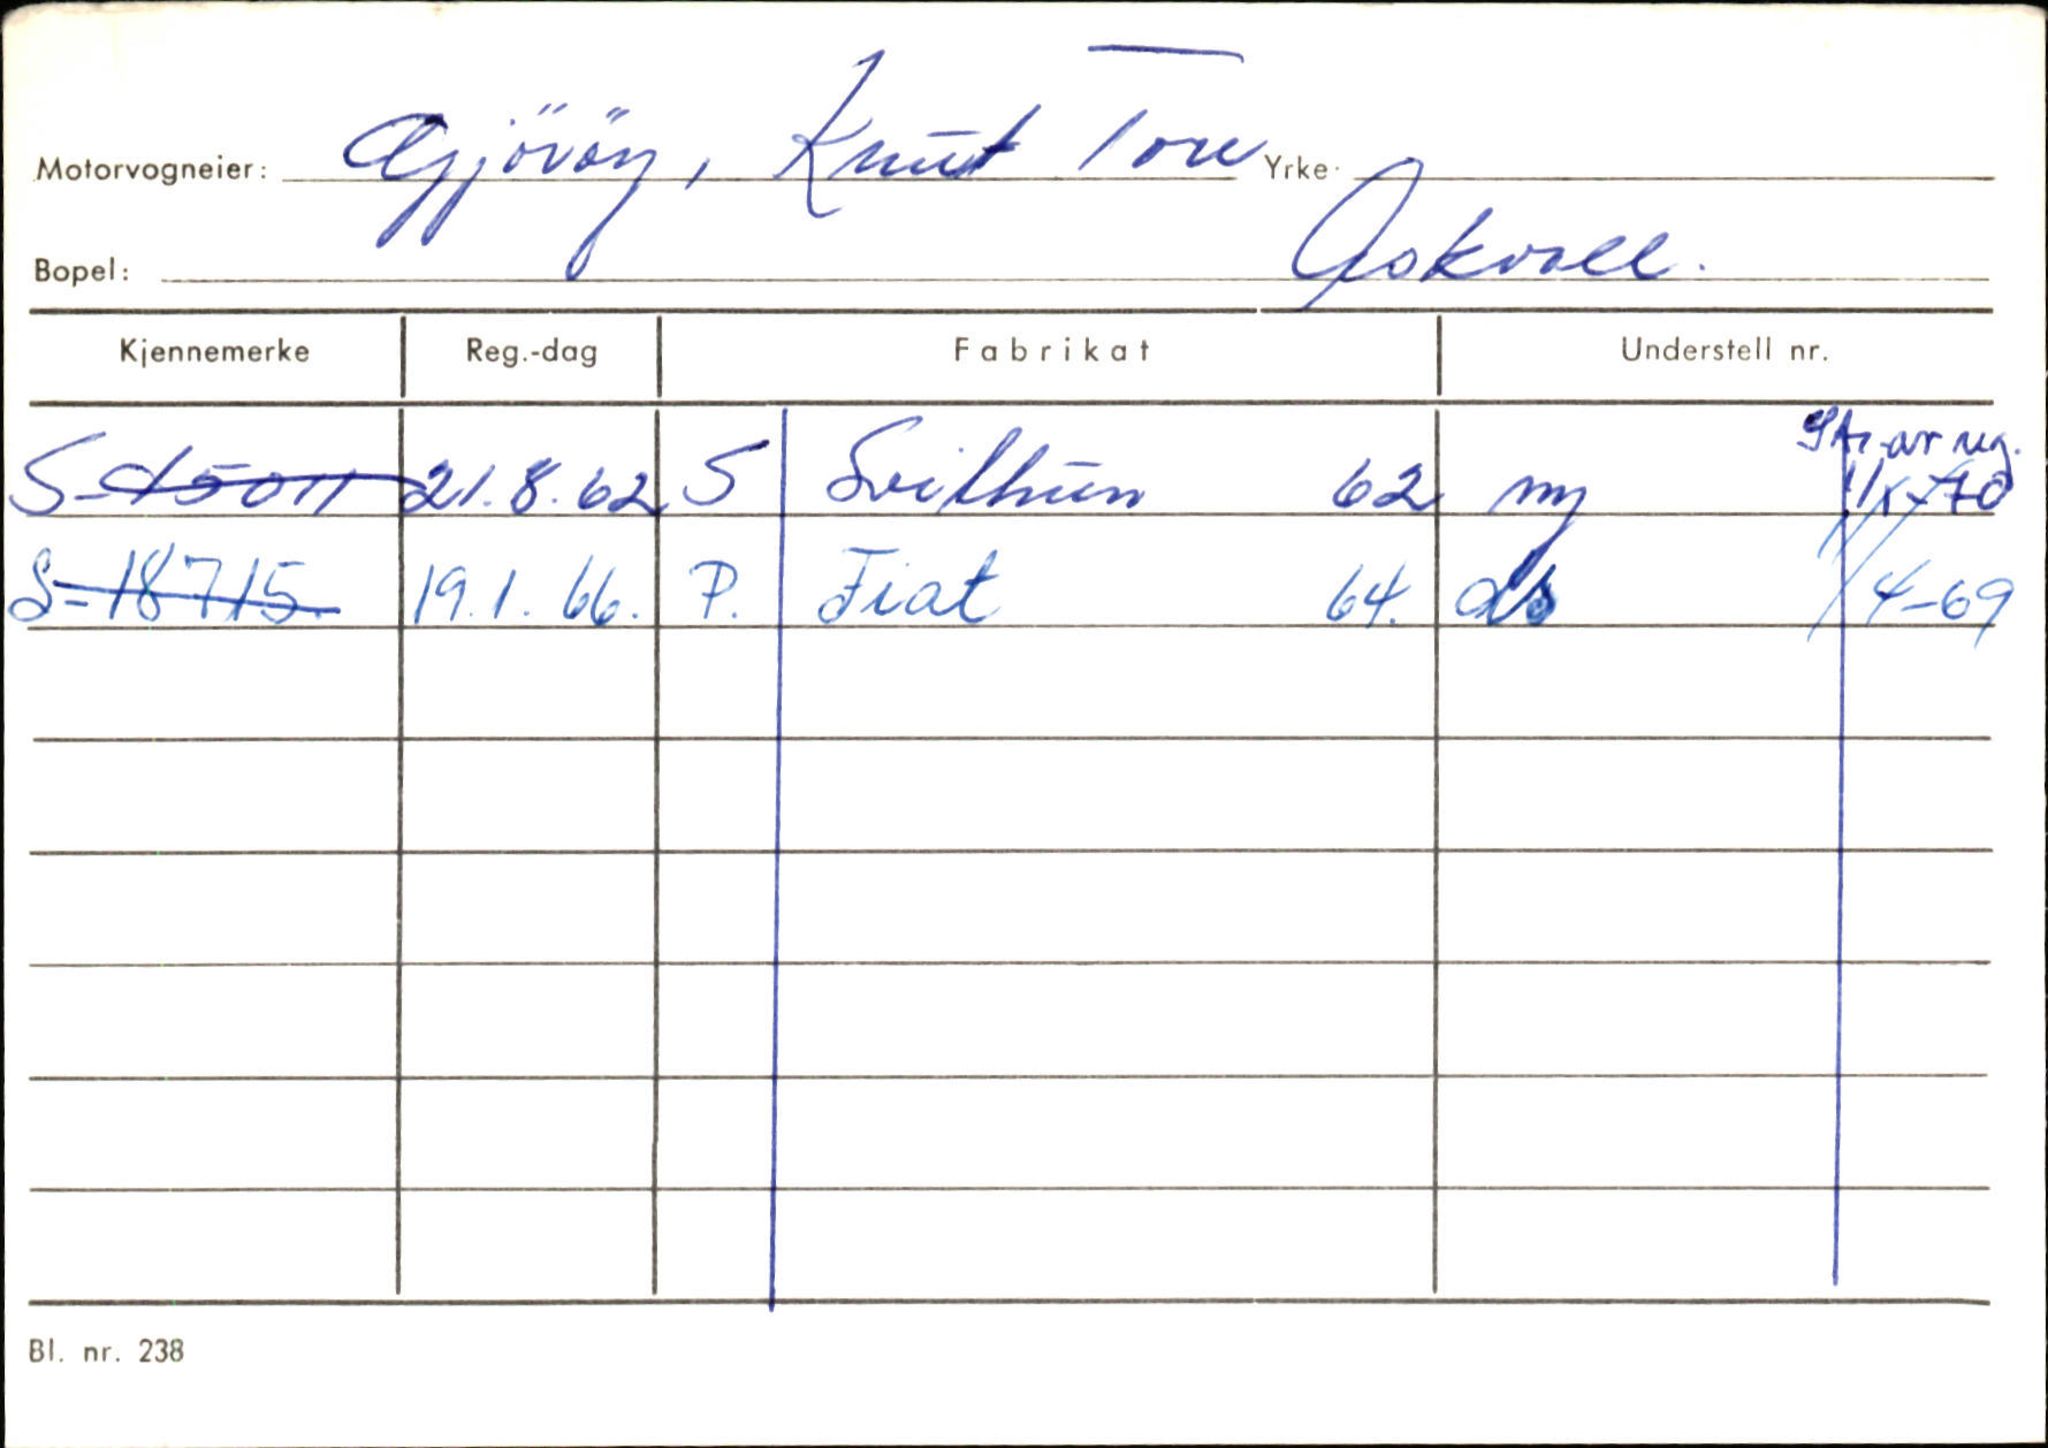 Motorvogneier: Gjöröy, Knut Tore Yrke
Bopel: Askvoll.
Kjennemerke Reg.-dag Fabrikat Understell nr.
S-15011 21.8.62 S Svithun 62 ny Str. av reg. 1/1-70
S-18715. 19.1.66. P. Fiat 64. ds 4-69
Bl. nr. 238